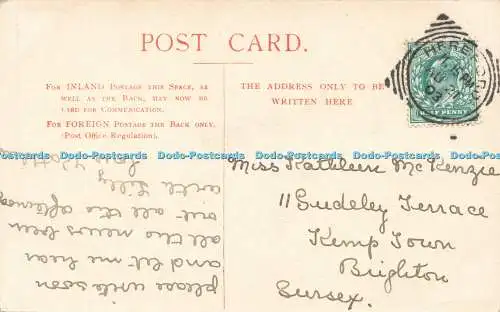 POST CARD.
FOR INLAND POSTAGE THIS SPACE, AS
WELL AS THE BACK, MAY NOW BE
USED FOR COMMUNICATION.
FOR FOREIGN POSTAGE THE BACK ONLY.
(Post Office Regulation).
THE ADDRESS ONLY TO BE
WRITTEN HERE
HEREFOR
HALFPENNY
Miss Kathleen McKenzie
11 Sudeley Terrace
Kemp Town
Brighton
Sussex.
please write soon
and let me hear
all the news been
out all the afternoon
with Lilly
Dodo-Postcards Dodo-Postcards Dodo-Postcards Dodo-Postcards Dodo-Postcards Dodo-Postcards